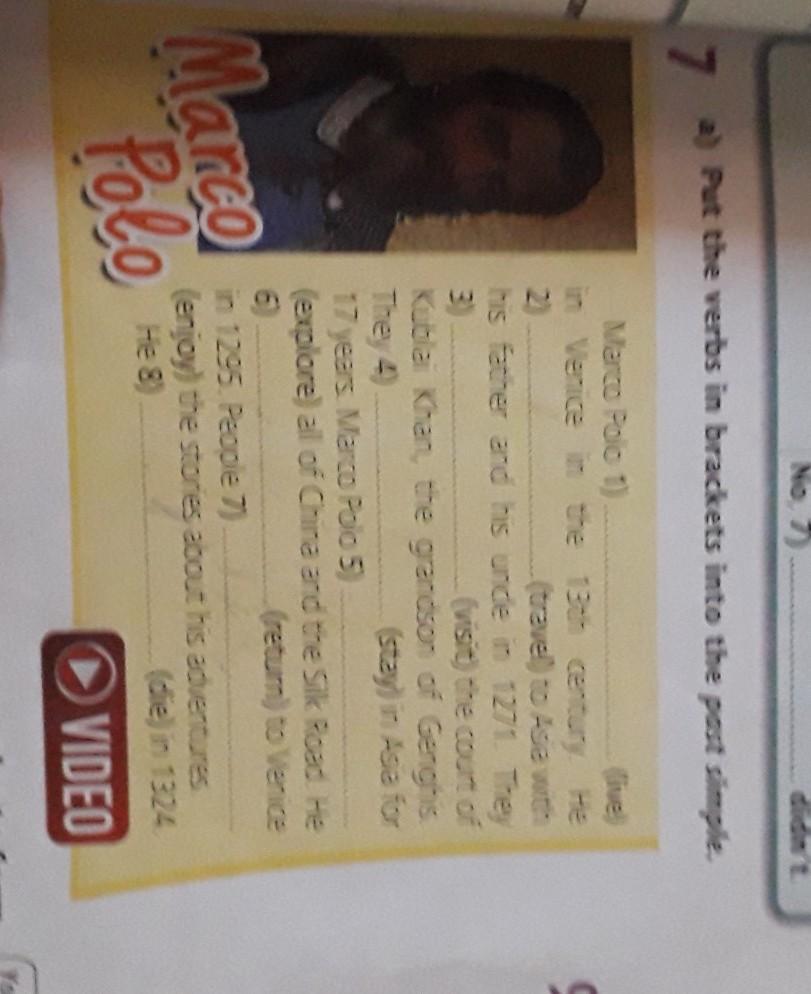 No, 7) ........................ didn't.
7 a) Put the verbs in brackets into the past simple.
Marco Polo 1) ........................ (live)
in Venice in the 13th century. He
2) ........................ (travel) to Asia with
his father and his uncle in 1271. They
3) ........................ (visit) the court of
Kublai Khan, the grandson of Genghis.
They 4) ........................ (stay) in Asia for
17 years. Marco Polo 5) ........................
(explore) all of China and the Silk Road. He
6) ........................ (return) to Venice
in 1295. People 7) ........................
(enjoy) the stories about his adventures.
He 8) ........................ (die) in 1324.
Marco
Polo
VIDEO